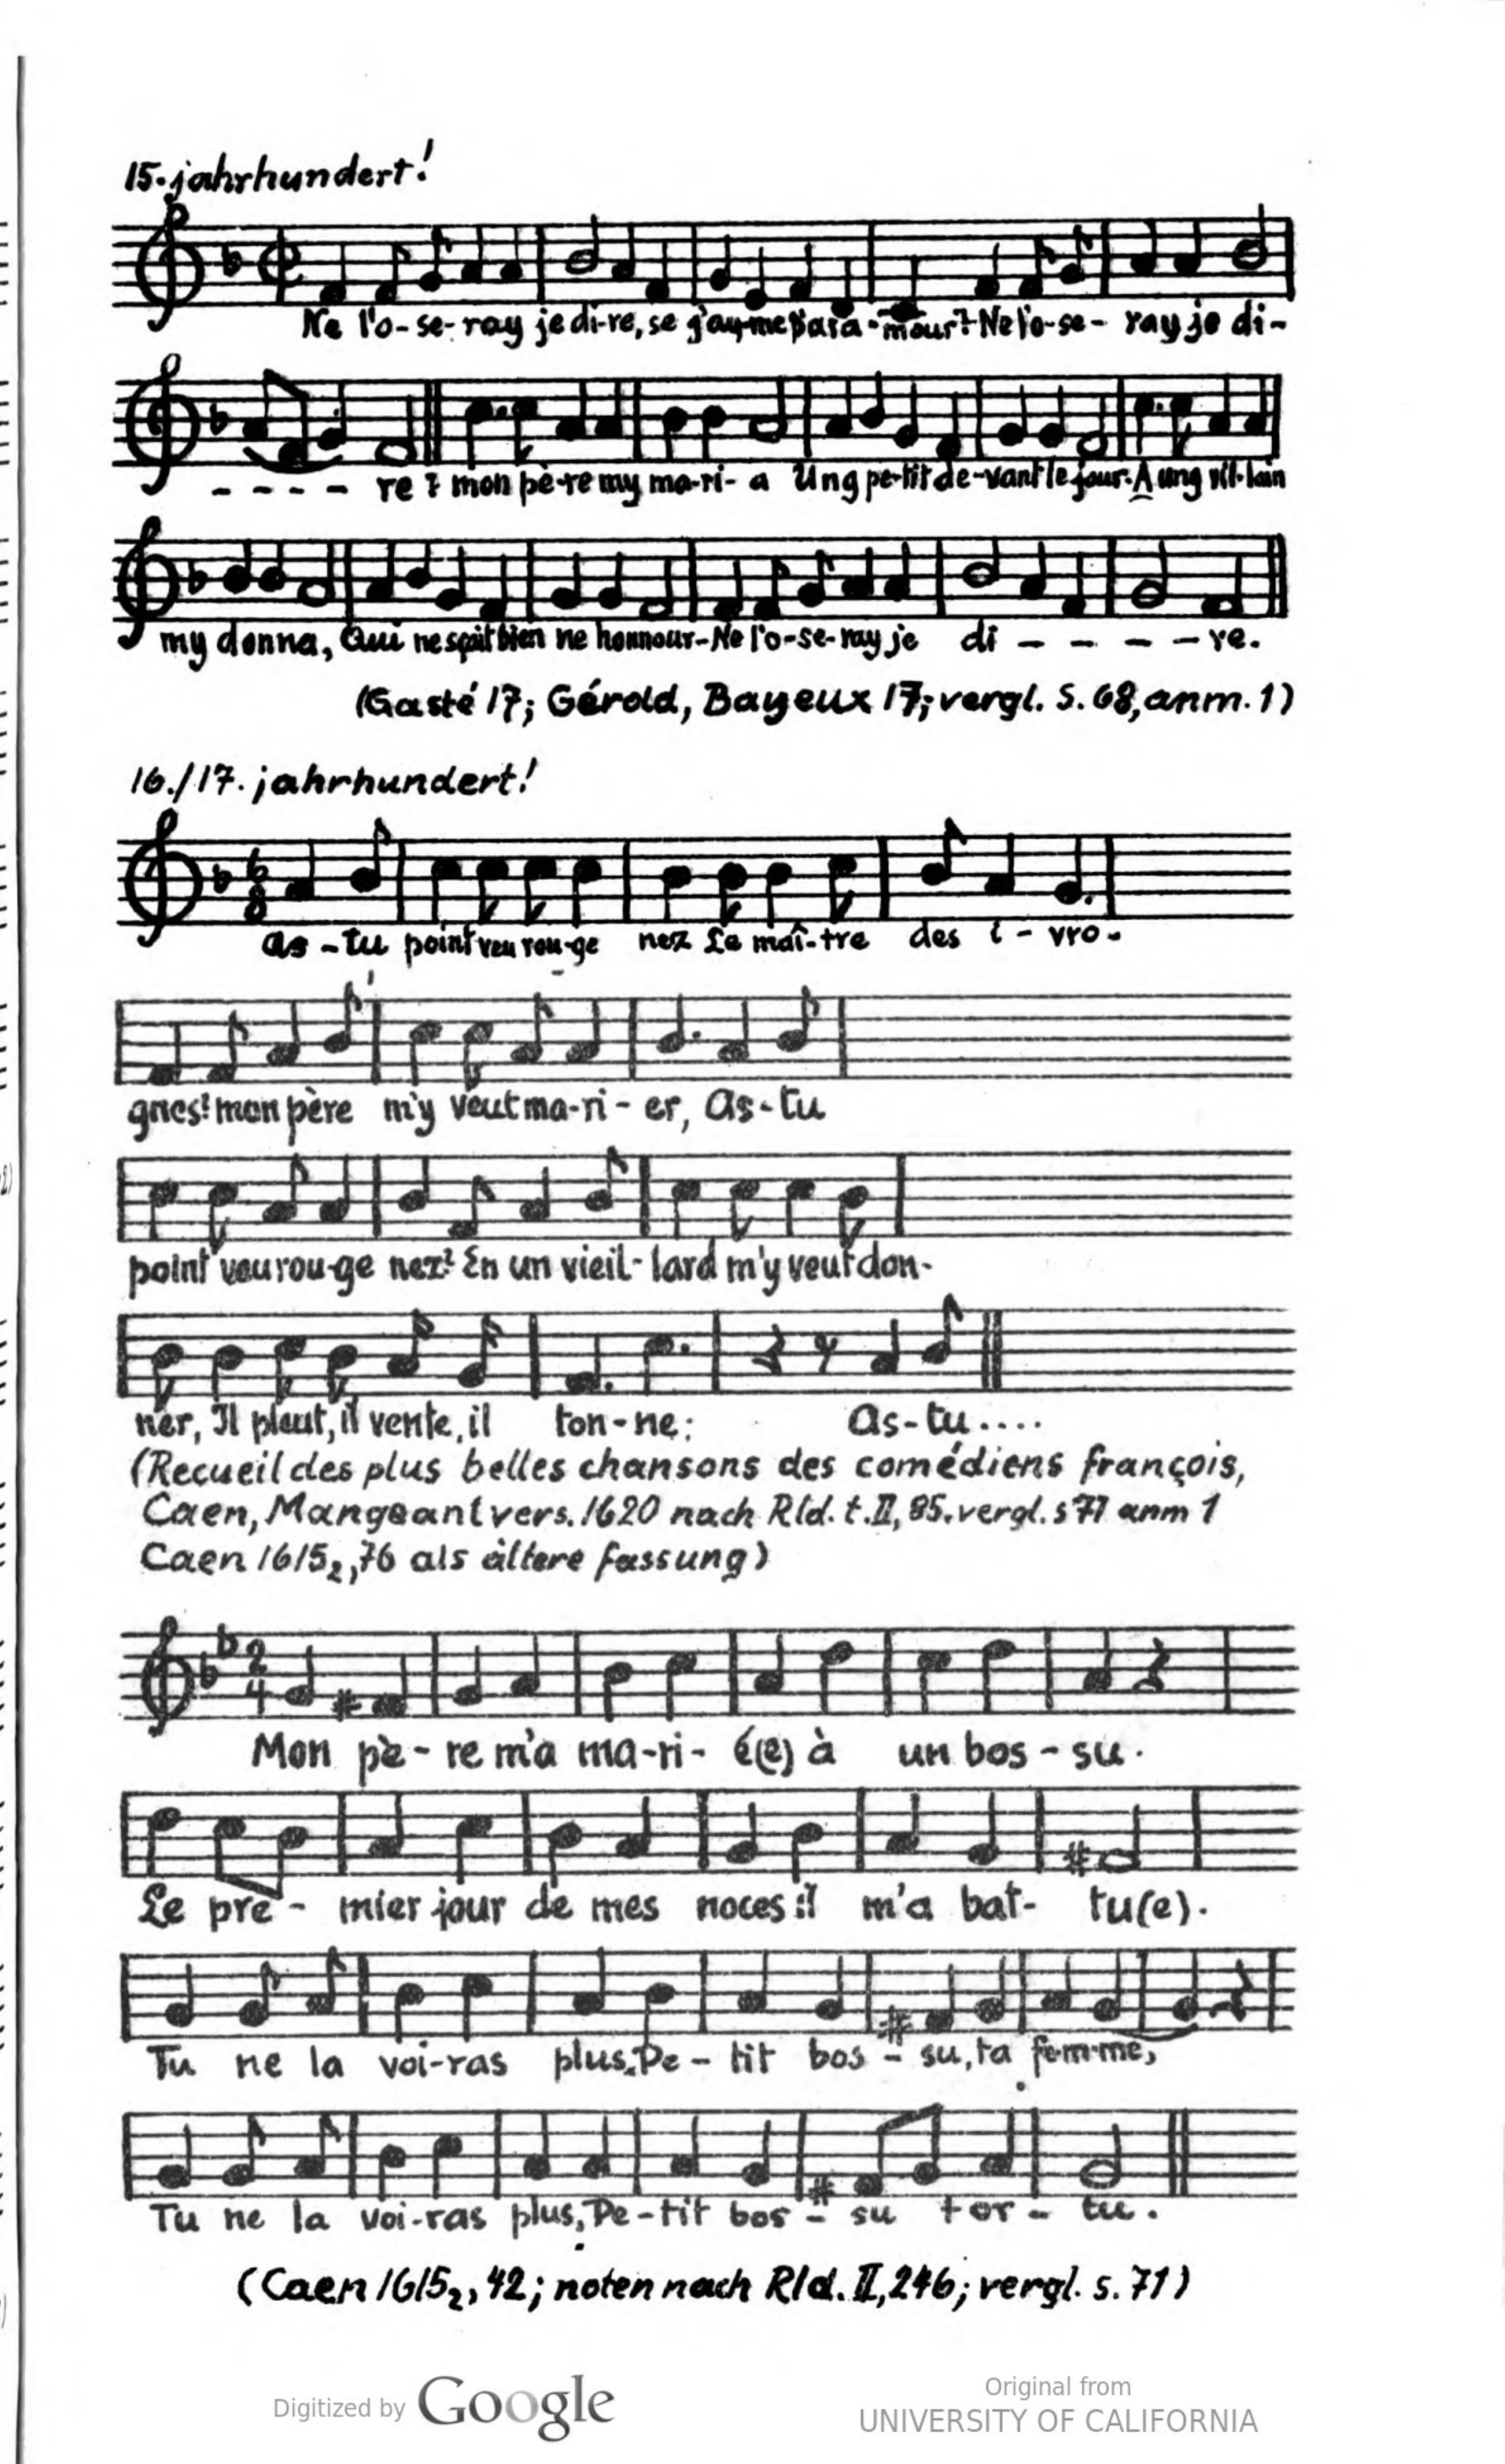 15. jahrhundert!
Ne l'o-se-ray je di-re, se j'ay-me par a-mour? Ne l'o-se-ray je di-
- - - - re? mon pè-re my ma-ri-a Ung pe-tit de-vant le jour. A ung vil-lain
my donna, Qui ne sçait bien ne honnour- Ne l'o-se-ray je di - - - - re.
(Gasté 17; Gérold, Bayeux 17; vergl. S. 68, anm. 1)
16./17. jahrhundert!
6
8
as-tu point veu rou-ge nez Le maî-tre des i-vro-
gnes? mon père m'y veut ma-ri-er, as-tu
point veu rou-ge nez? En un vieil-lard m'y veut don-
ner, Il pleut, il vente, il ton-ne: as-tu....
(Recueil des plus belles chansons des comédiens françois,
Caen, Mangeant vers. 1620 nach Rld. t. II, 85. vergl. s 71 anm 1
Caen 1615₂, 76 als ältere fassung)
2
4
Mon pè-re m'a ma-ri-é(e) à un bos-su.
Le pre-mier jour de mes noces il m'a bat-tu(e).
Tu ne la voi-ras plus, Pe-tit bos-su, ta fem-me,
Tu ne la voi-ras plus, Pe-tit bos-su tor-tu.
(Caen 1615₂, 42; noten nach Rld. II, 246; vergl. s. 71)
Digitized by Google
Original from
UNIVERSITY OF CALIFORNIA